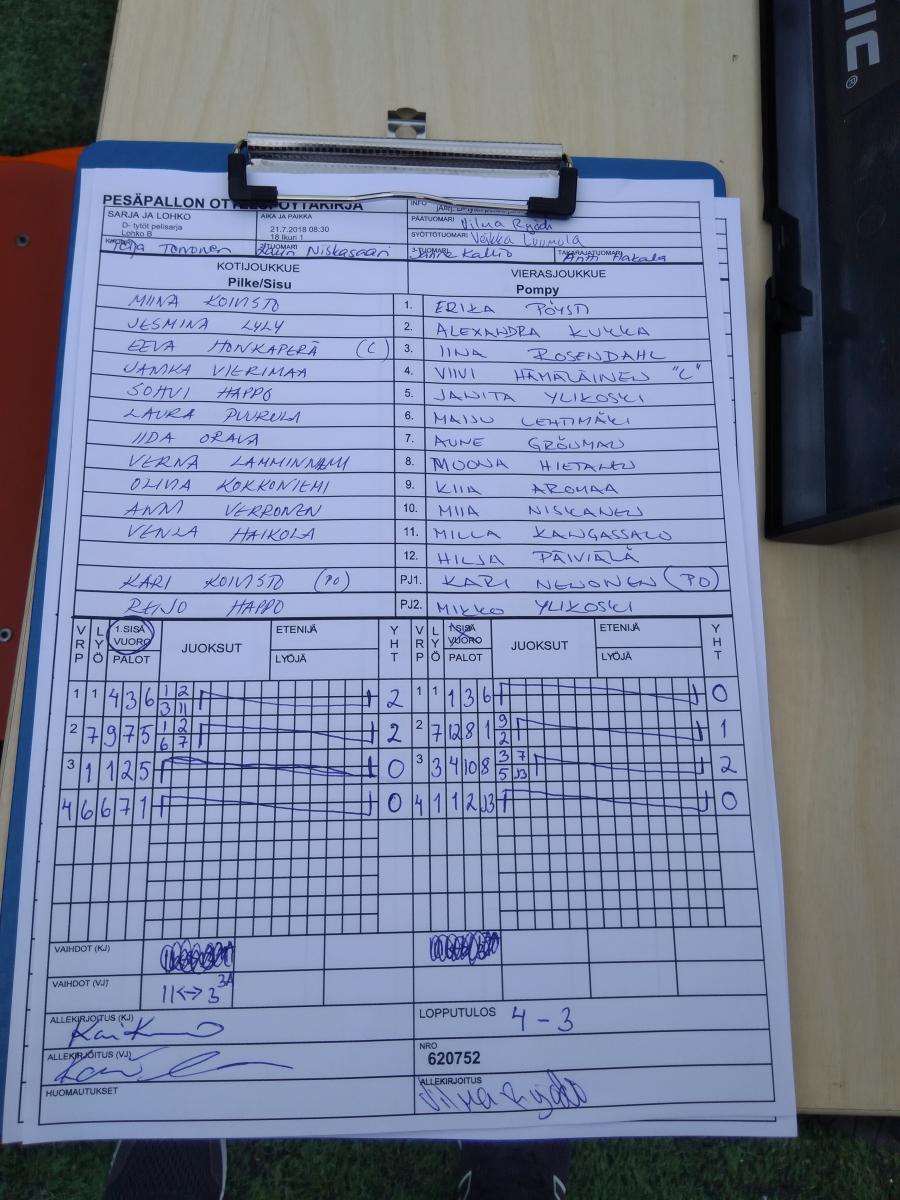 NIC®
PESÄPALLON OTTELUPÖYTÄKIRJA
INFO
SARJA JA LOHKO
D- tytöt pelisarja
Lohko B
AIKA JA PAIKKA
21.7.2018 08:30
18 Ikuri 1
PÄÄTUOMARI Vilma Rydö
SYÖTTÖTUOMARI Veikka Luumola
Teija Toivonen
Niskasaari
3-TUOMARI Kallio
TAKARAJATUOMARI Antti Hakala
KOTIJOUKKUE
Pilke/Sisu
VIERASJOUKKUE
Pompy
MIINA KOIVISTO 1. ERIKA PÖYSTI
JESMINA LYLY 2. ALEXANDRA KUKKA
EEVA HONKAPERÄ (C) 3. IINA ROSENDAHL
JANIKA VIERIMAA 4. VIIVI HÄMÄLÄINEN "C"
SOHVI HAPPO 5. JANITA YLIKOSKI
LAURA PUURULA 6. MAIJU LEHTIMÄKI
IIDA ORAVA 7. AUNE GRÖNMAN
VERNA LAMMINNIEMI 8. MOONA HIETANEN
OLIVIA KOKKONIEMI 9. KIIA AROMAA
ANNI VERRONEN 10. MIIA NISKANEN
VENLA HAIKOLA 11. MILLA KANGASSALO
12. HILJA PÄIVIÄLÄ
KARI KOIVISTO (PO) PJ1. KARI NENONEN (PO)
REIJO HAPPO PJ2. MIKKO YLIKOSKI
VRP LYÖ 1.SISÄ VUORO PALOT JUOKSUT ETENIJÄ LYÖJÄ YHT VRP LYÖ 1.SISÄ VUORO PALOT JUOKSUT ETENIJÄ LYÖJÄ YHT
1 1 4 3 6 1 2 2 1 1 1 3 6 0
3 11
2 7 9 7 5 1 2 2 2 7 12 8 1 9 1
6 7 2
3 1 1 2 5 0 3 3 4 10 8 3 7 2
5 J3
4 6 6 7 1 0 4 1 1 2 J3 0
VAIHDOT (KJ)
VAIHDOT (VJ) 11<->3 3A
ALLEKIRJOITUS (KJ)
LOPPUTULOS 4-3
ALLEKIRJOITUS (VJ)
NRO
620752
HUOMAUTUKSET
ALLEKIRJOITUS
Vilma Rydö